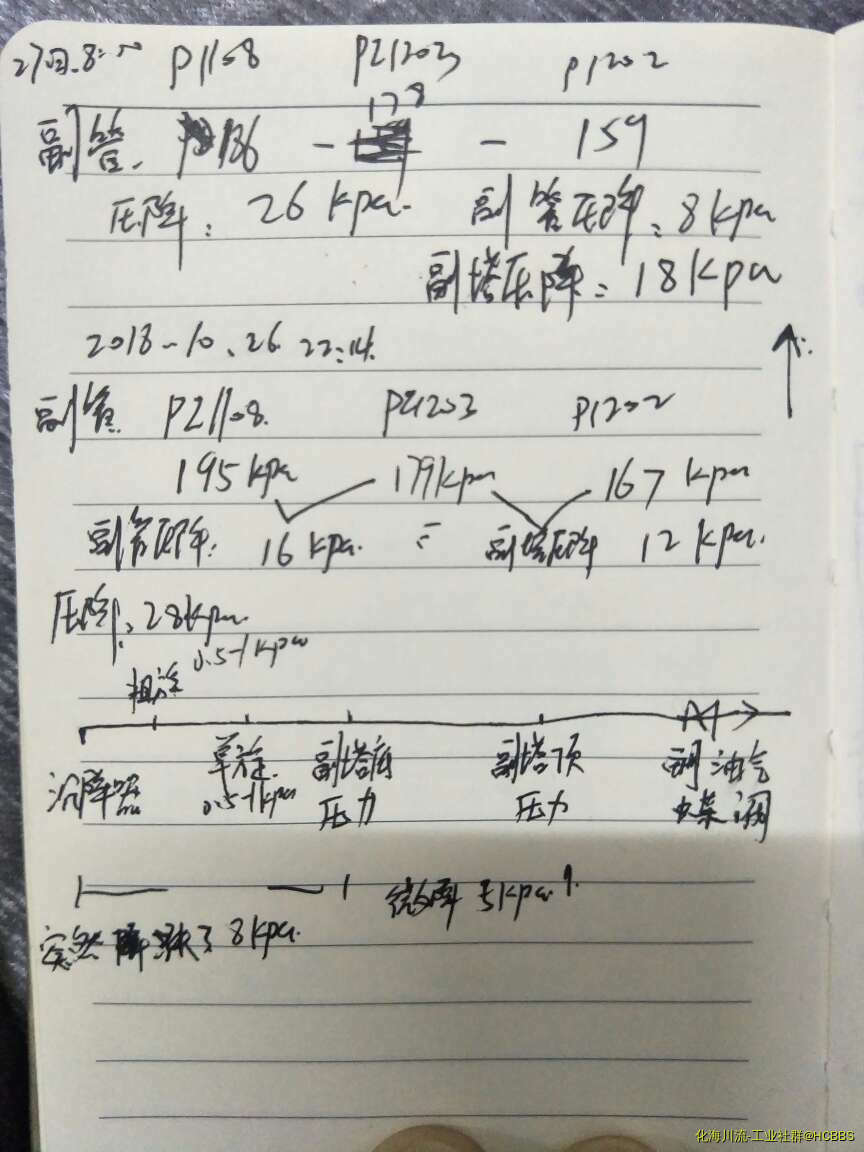 27日.8:50 P1108 PI1203 P1202
178
副管. 186 - - 159
压降: 26 kpa. 副管压降: 8kpa
副塔压降: 18kpa
2018-10.26 22:14.
副管 PI1108. PI1203 P1202
195kpa 179kpa 167 kpa
副管压降: 16 kpa. 副塔压降 12 kpa.
压降: 28kpa.
粗旋 0.5-1kpa
沉降器 单旋 副塔底 副塔顶 副油气
0.5-1kpa 压力 压力 蝶阀
微降 5kpa
突然降 了 8kpa.
化海川流-工业社群@HCBBS